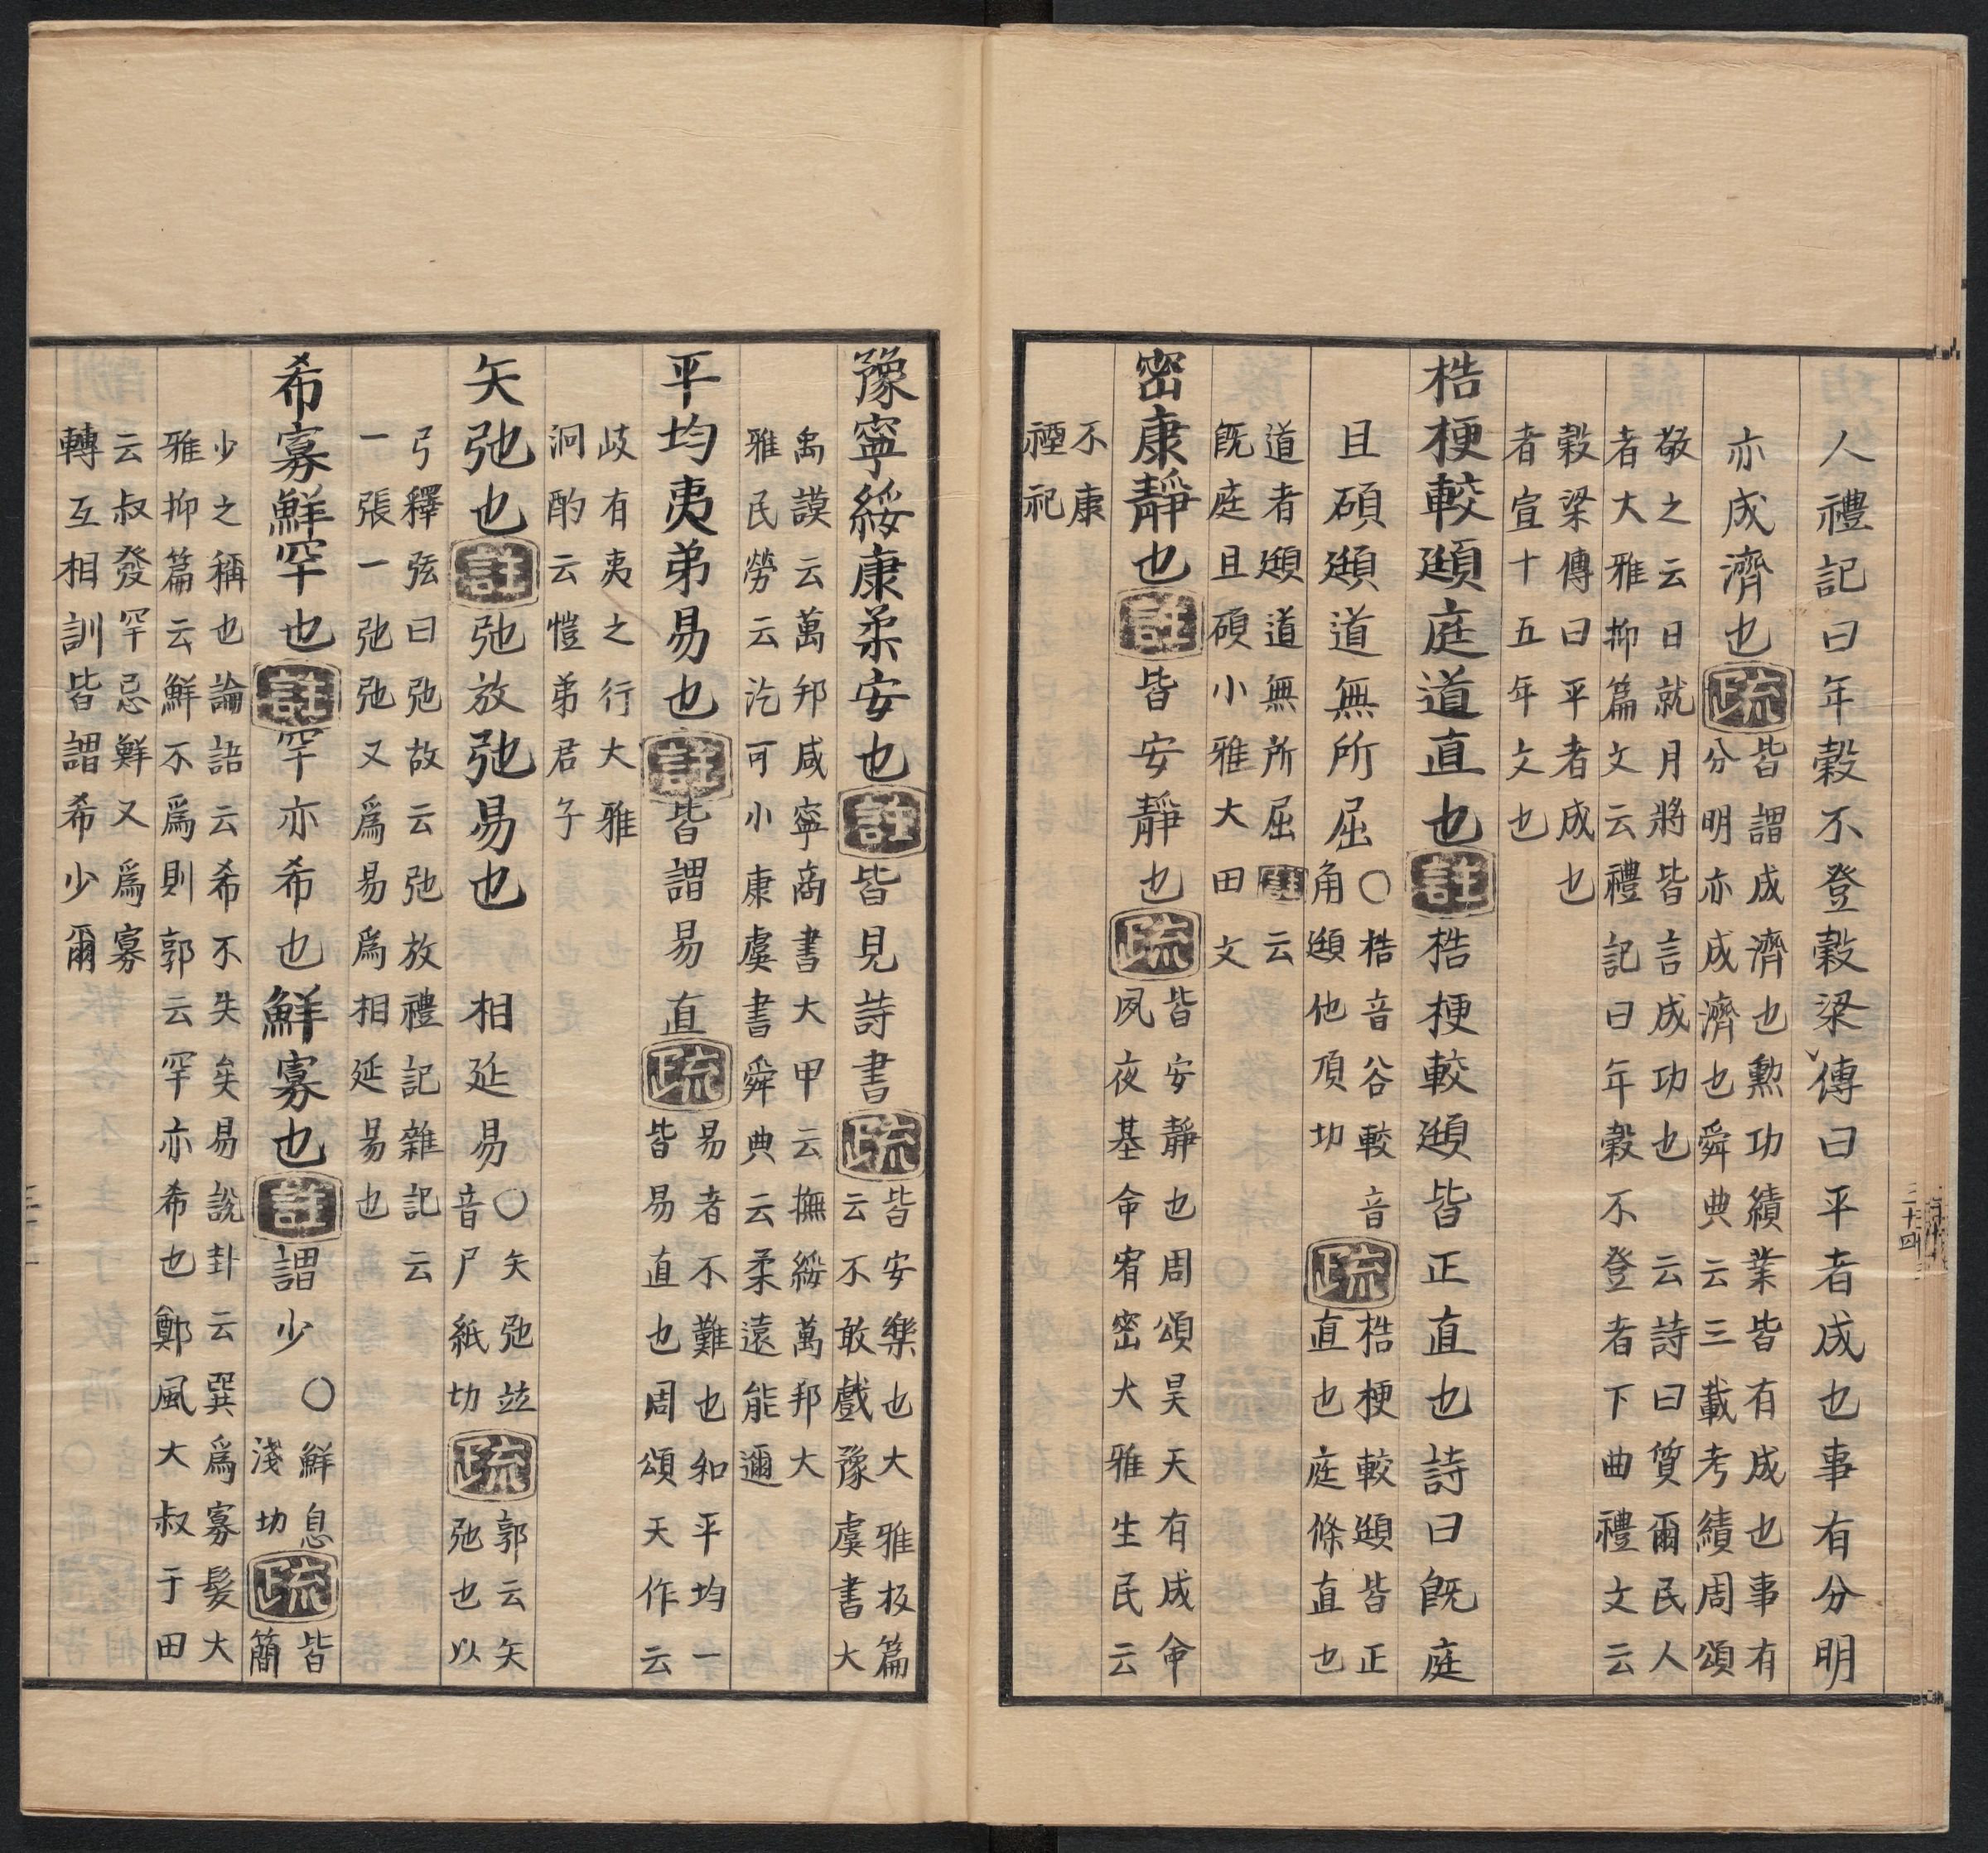 人禮記曰年穀不登穀梁傳曰平者成也事有分明
亦成濟也疏
皆謂成濟也勲功績業皆有成也事有
分明亦成濟也舜典云三載考績周頌
敬之云日就月將皆言成功也云詩曰質爾民人
者大雅抑篇文云禮記曰年穀不登者下曲禮文云
穀梁傳曰平者成也
者宣十五年文也
梏梗較頲庭道直也註梏梗較頲皆正直也詩曰既庭
且碩頲道無所屈
○梏音谷較音
角頲他頂切
疏
梏梗較頲皆正
直也庭條直也
道者頲道無所屈註云
既庭且碩小雅大田文
密康靜也註皆安靜也疏
皆安靜也周頌昊天有成命
夙夜基命宥密大雅生民云
不康
禋祀
三十四
豫寧綏康柔安也註皆見詩書疏
皆安樂也大雅板篇
云不敢戲豫虞書大
禹謨云萬邦咸寧商書大甲云撫綏萬邦大
雅民勞云汔可小康虞書舜典云柔遠能邇
平均夷弟易也註皆謂易直疏
易者不難也和平均一
皆易直也周頌天作云
歧有夷之行大雅
泂酌云愷弟君子
矢弛也註弛放弛易也 相延易
○矢弛竝
音尸紙切
疏
郭云矢
弛也以
弓釋弦曰弛故云弛放禮記雜記云
一張一弛弛又爲易爲相延易也
希寡鮮罕也註罕亦希也鮮寡也註謂少
○鮮息
淺切
疏
皆
簡
少之稱也論語云希不失矣易說卦云巽爲寡髮大
雅抑篇云鮮不爲則郭云罕亦希也鄭風大叔于田
云叔發罕忌鮮又爲寡
轉互相訓皆謂希少爾